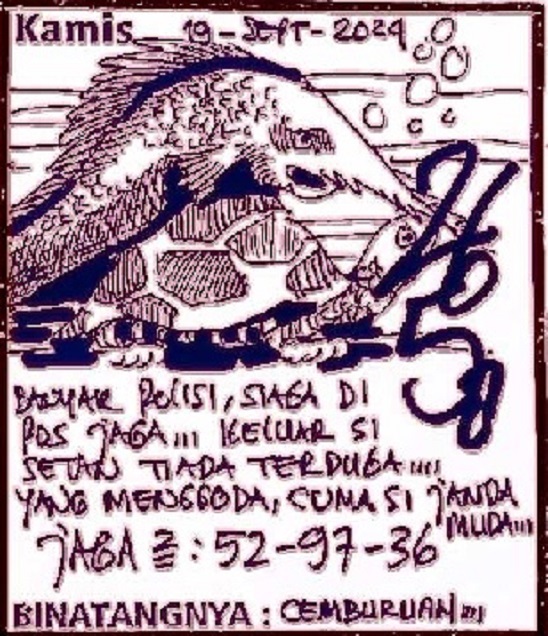 Kamis 19-SEPT-2024
BANYAK POLISI, SIAGA DI
POS JAGA,,, KELUAR SI
SETAN TIADA TERDUGA,,,,
YANG MENGGODA, CUMA SI JANDA
MUDA,,,
JAGA 2=: 52-97-36
BINATANGNYA : CEMBURUAN,,,